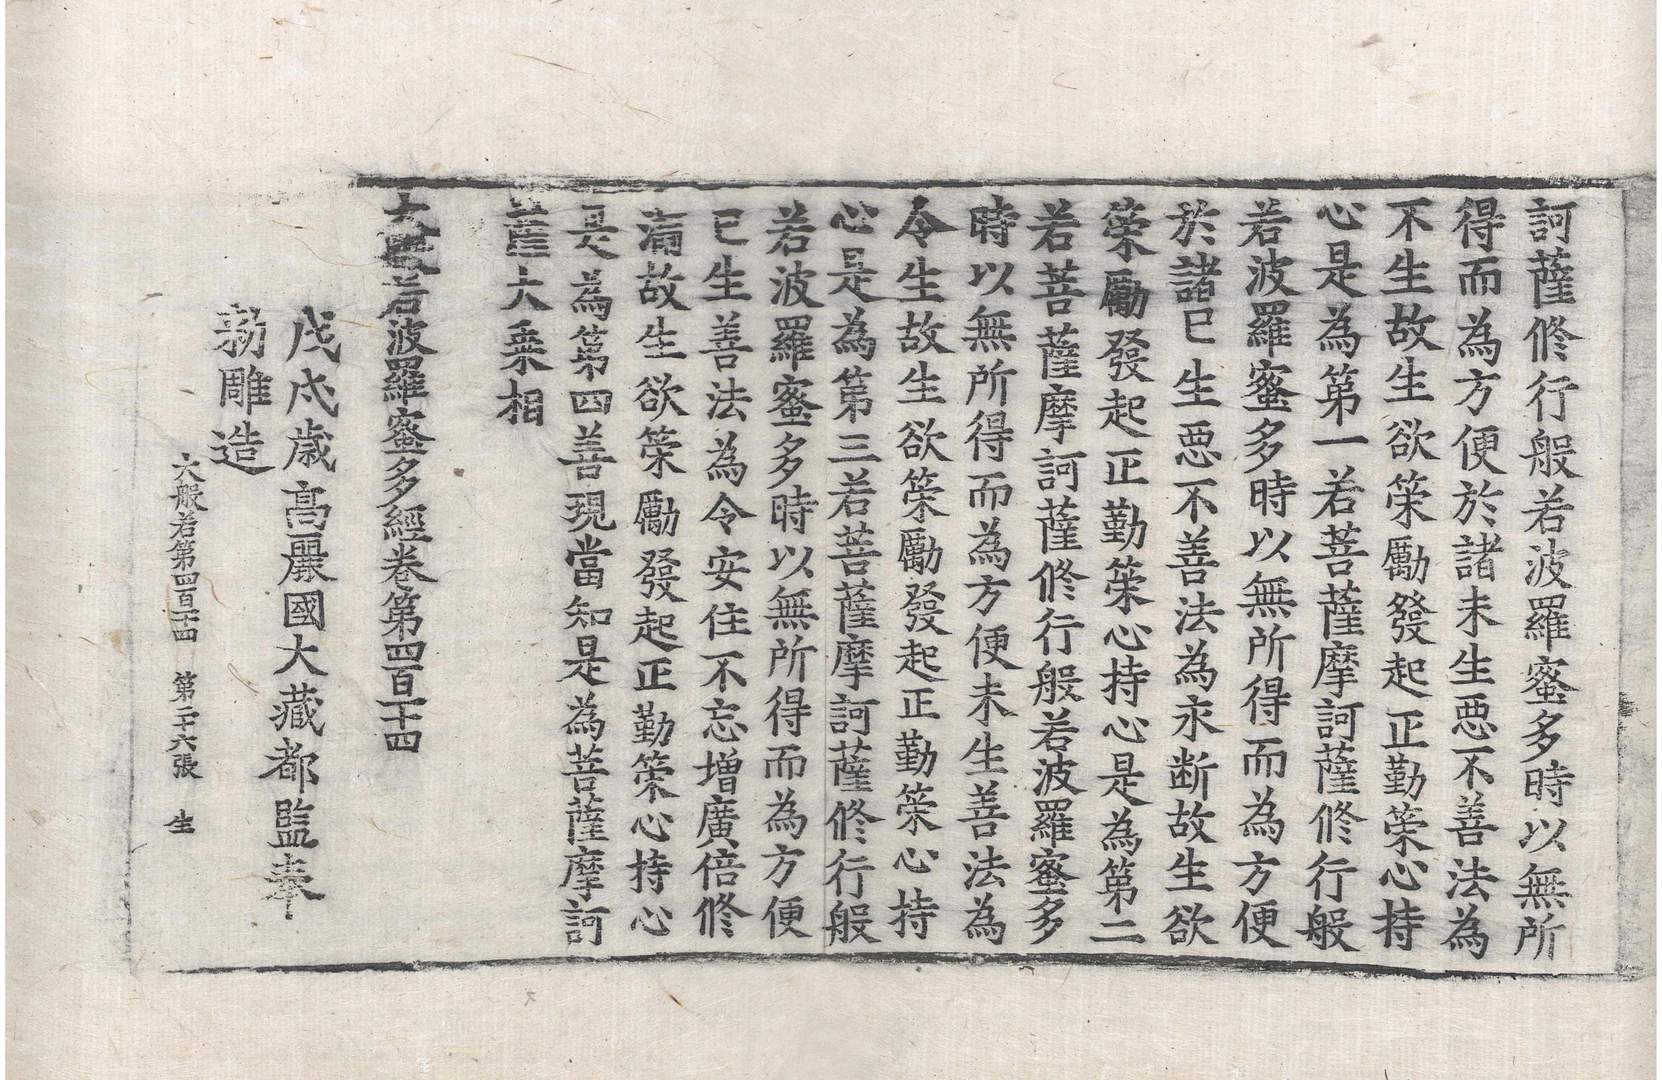 訶薩修行般若波羅蜜多時以無所
得而為方便於諸未生惡不善法為
不生故生欲策勵發起正勤策心持
心是為第一若菩薩摩訶薩修行般
若波羅蜜多時以無所得而為方便
於諸已生惡不善法為永断故生欲
策勵發起正勤策心持心是為第二
若菩薩摩訶薩修行般若波羅蜜多
時以無所得而為方便未生善法為
令生故生欲策勵發起正勤策心持
心是為第三若菩薩摩訶薩修行般
若波羅蜜多時以無所得而為方便
已生善法為令安住不忘增廣倍修
滿故生欲策勵發起正勤策心持心
是為第四善現當知是為菩薩摩訶
薩大乗相
大般若波羅蜜多經卷第四百一十四
戊戌歳高麗國大藏都監奉
勅雕造
大般若第四百一十四 第二十六張 生